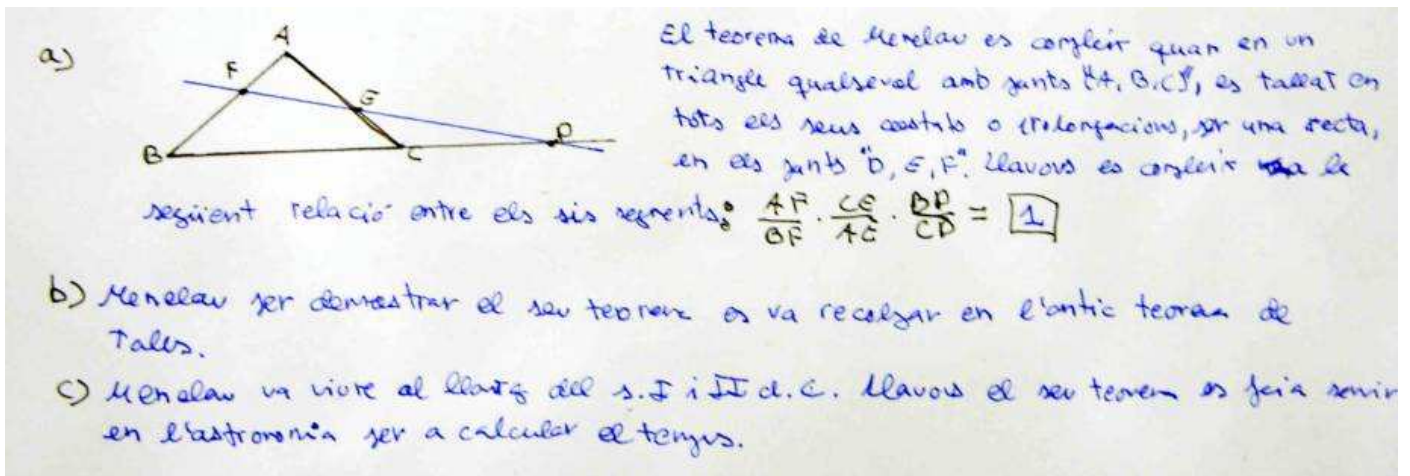 a) A F E B C D
El teorema de Menelau es compleix quan en un
triangle qualsevol amb punts "A, B, C", es tallat en
tots els seus costats o prolongacions, per una recta,
en els punts "D, E, F". Llavors es compleix la
següent relació entre els sis segments: AF/BF · CE/AE · BD/CD = 1
b) Menelau per demostrar el seu teorema es va recolzar en l'antic teorema de
Tales.
c) Menelau va viure al llarg del s. I i II d.C. Llavors el seu teorema es feia servir
en l'astronomia per a calcular el temps.